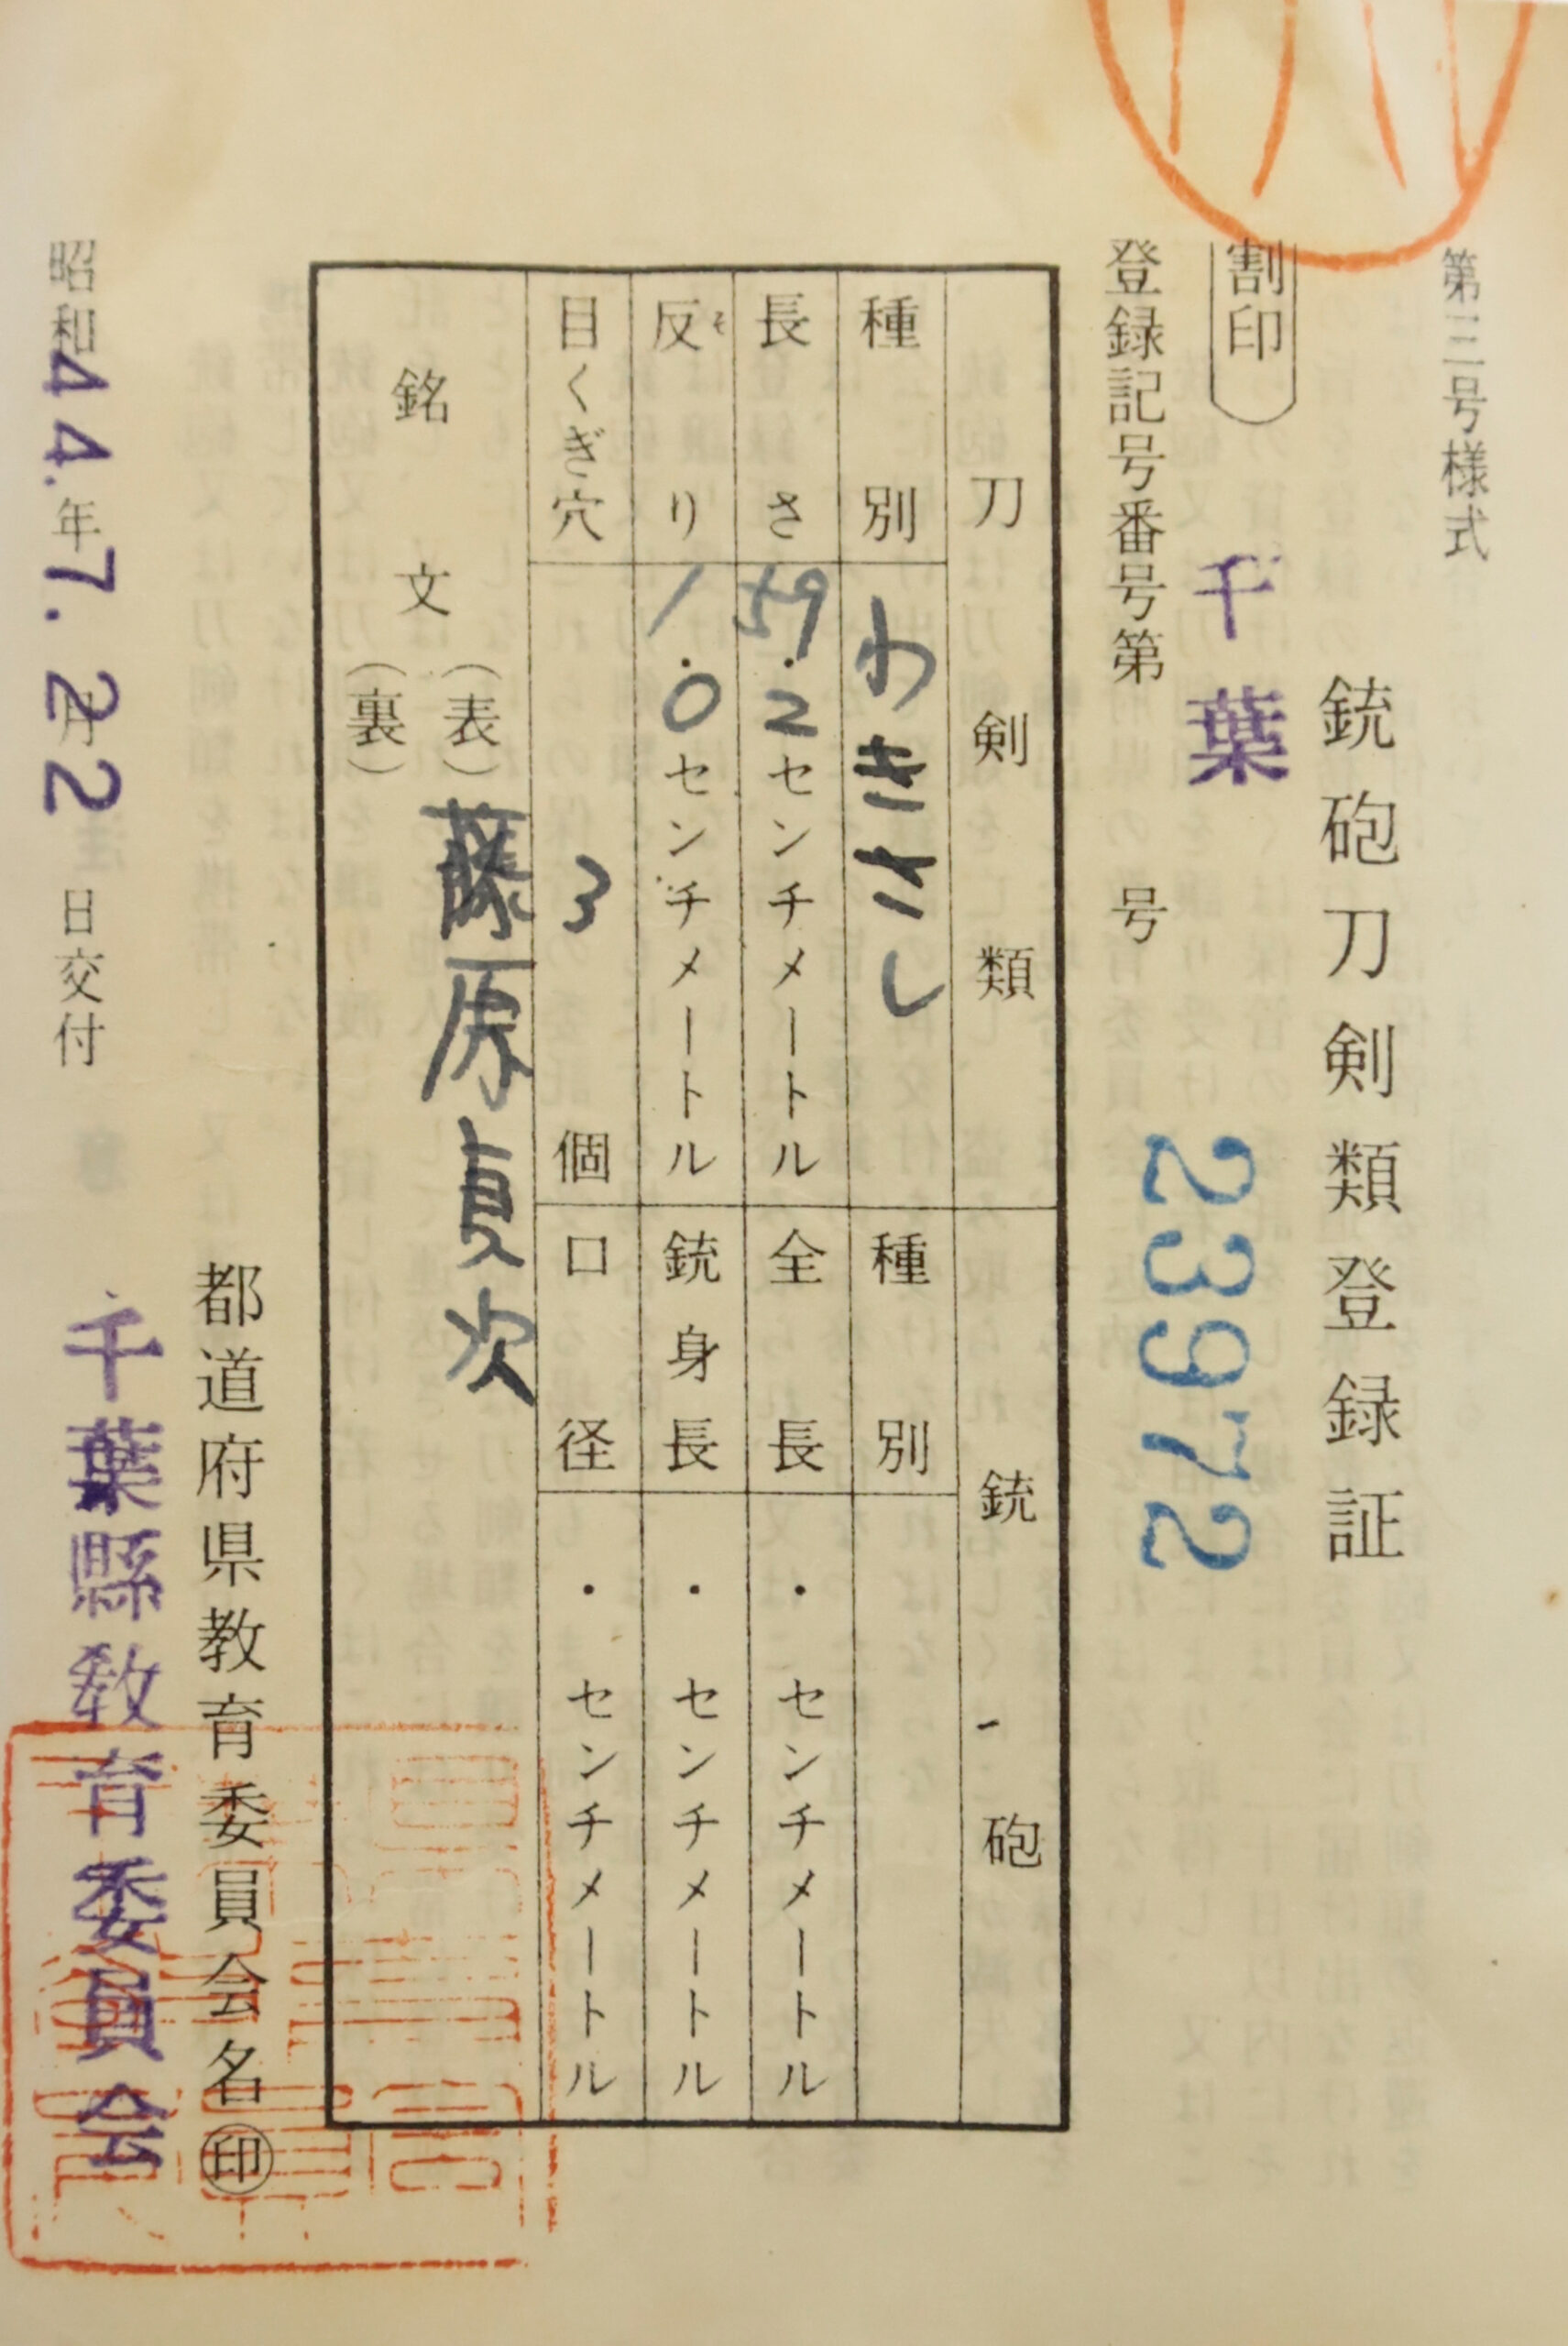 第三号様式
銃砲刀剣類登録証
割印
千葉
23972
登録記号番号第 号
刀剣類
銃砲
種別 わきさし
種別
長さ 59.2センチメートル
全長 ・センチメートル
反り 1.0センチメートル
そ
銃身長 ・センチメートル
目くぎ穴 3個
口径 ・センチメートル
銘文
(表) 藤原貞次
(裏)
都道府県教育委員会名㊞
千葉縣教育委員会
昭和44.年7.月22日交付